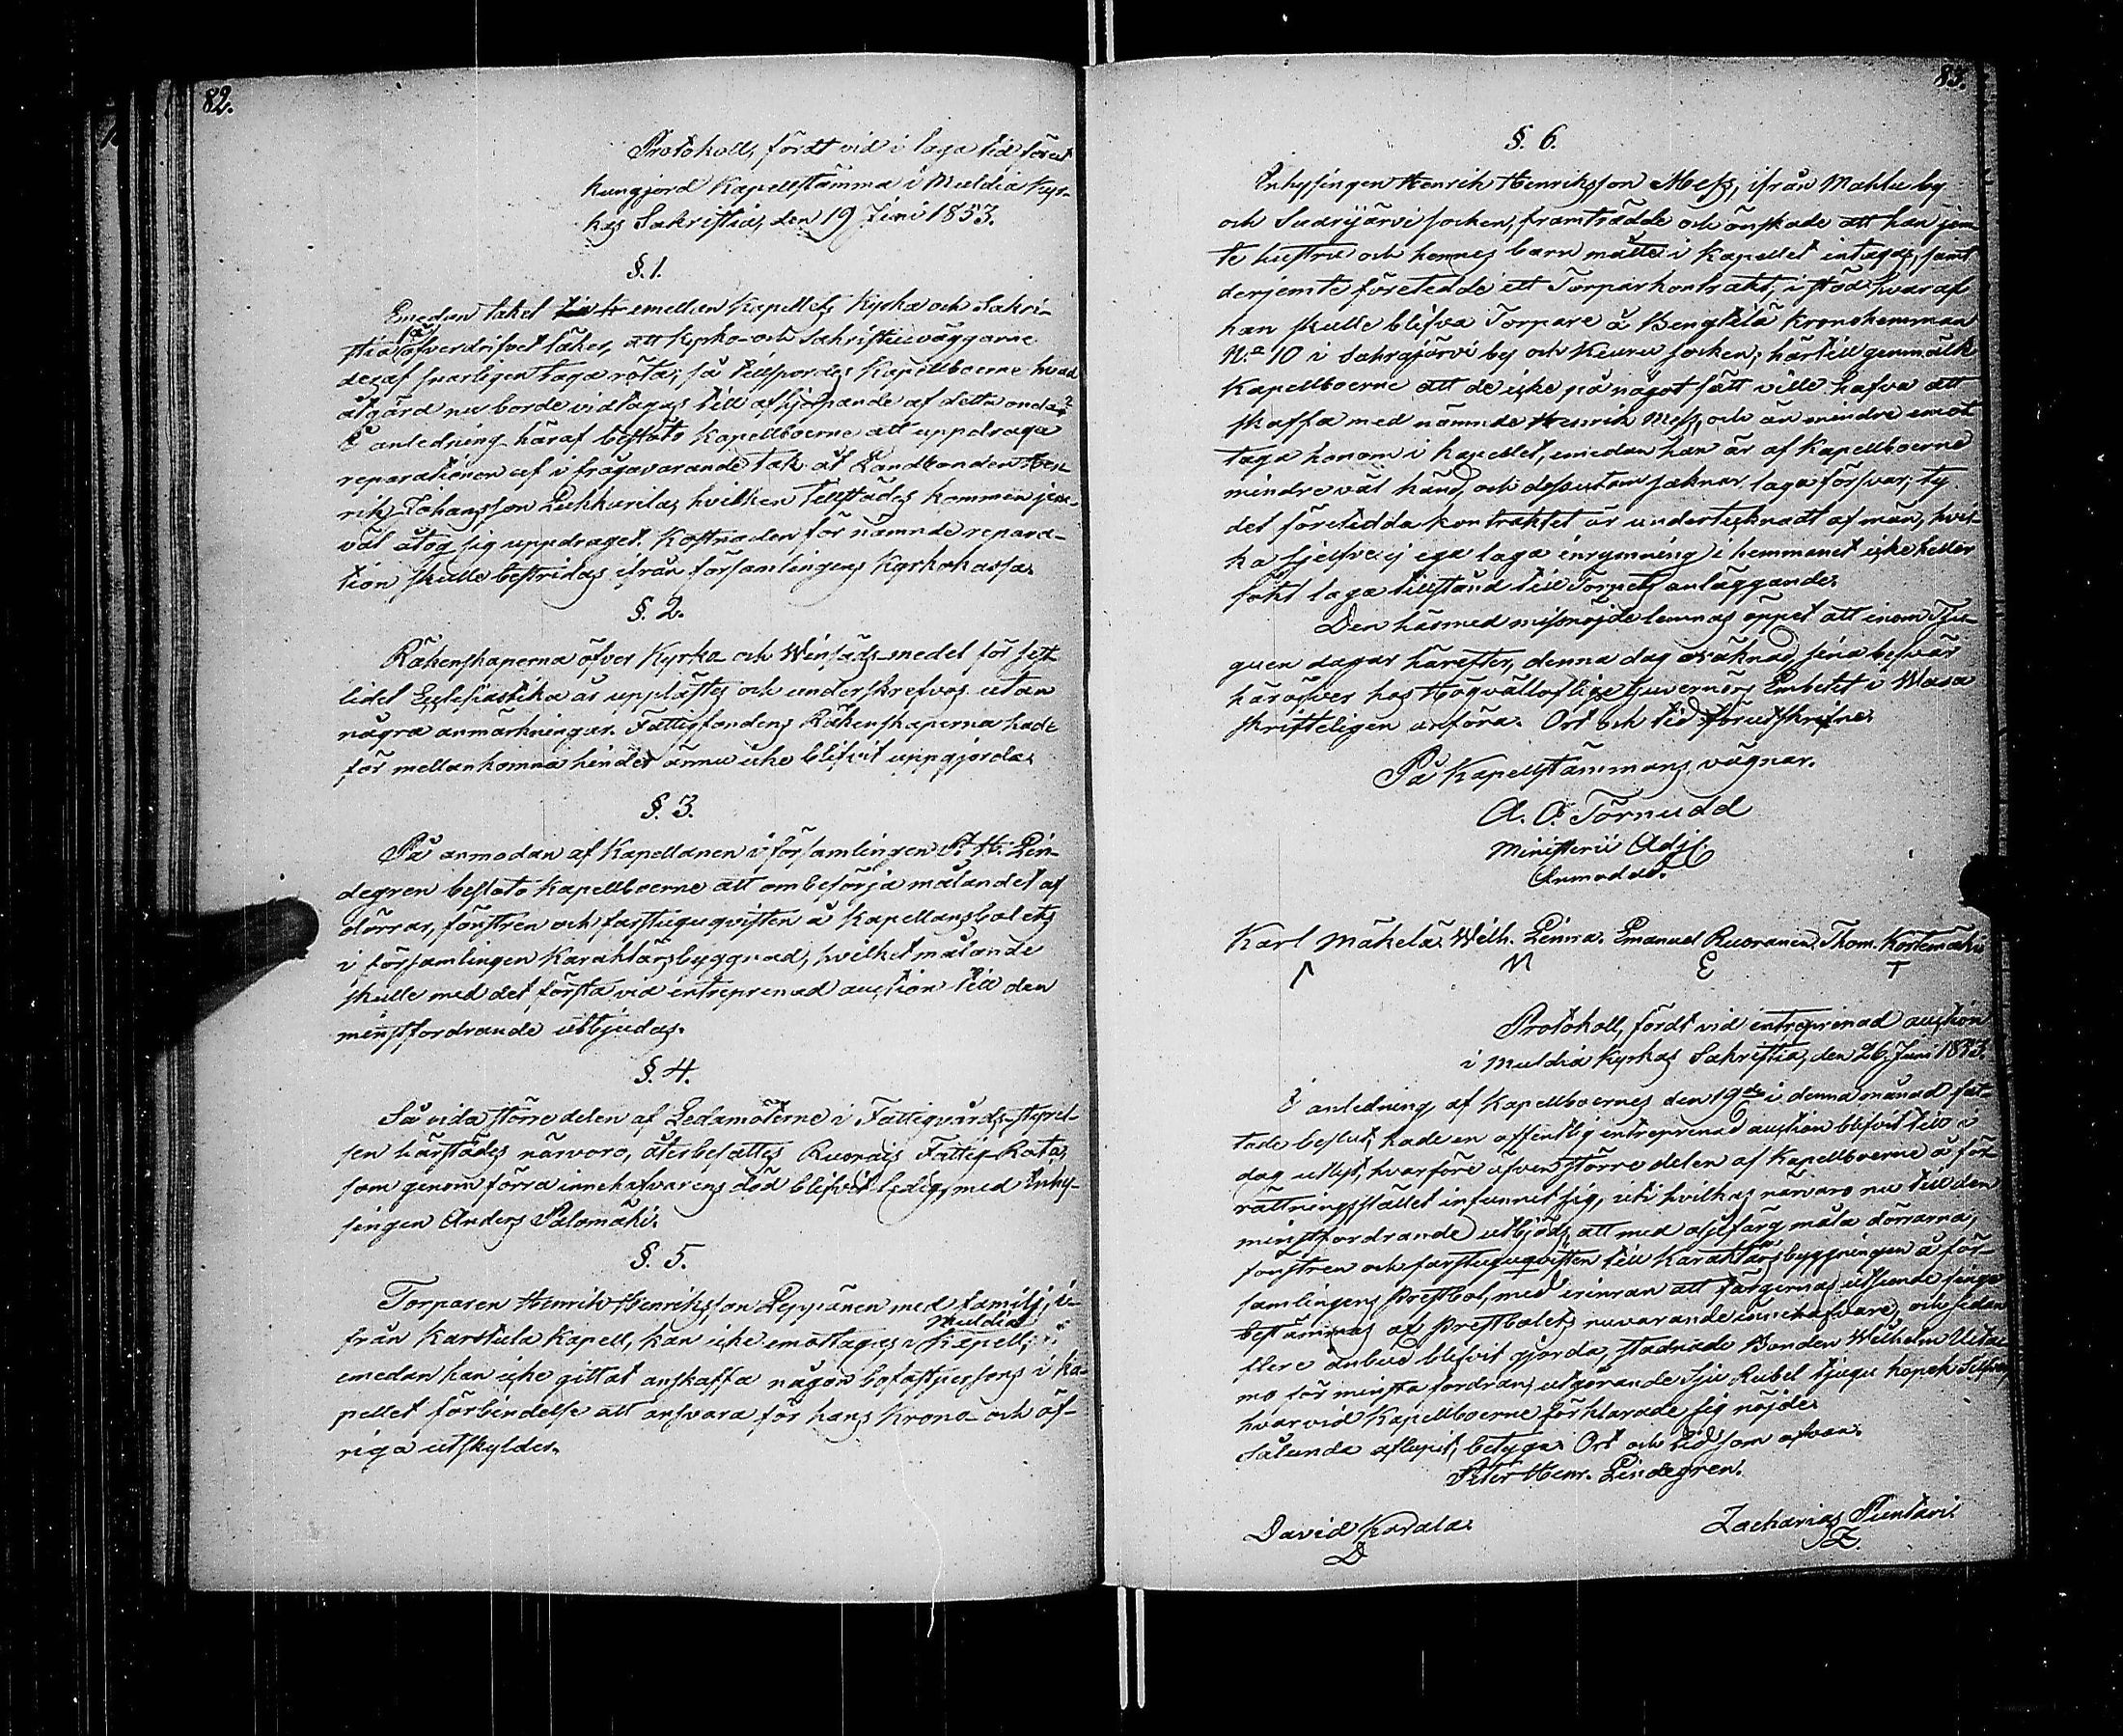 82.
Protokoll, fördt vid i laga tid förut
kungjord Kapellstämma i Multia Kyr-
kas Sakristia, den 19 Juni 1853.
§. 1.
Emedan taket emellan Kapellets Kyrka och Sakri-
stia så öfverdrifvet läker, att Kyrko- och Sakristieväggarne
deraf snarligen taga röta; så tillspordes Kapellboerne hvad
åtgärd nu borde vidtagas till afhjelpande af detta onda?
I anledning häraf beslöto Kapellboerne att uppdraga
reparationen af i frågavarande tak åt Landbonden Hen-
rik Johansson Liekkarila, hvilken tillstädes kommen jem-
väl åtog sig uppdraget. Kostnaden för nämnde repara-
tion skulle bestridas ifrån församlingens Kyrkokassa.
§. 2.
Räkenskaperna öfver Kyrko- och Winsäds-medel för sist-
lidet Ecklesiastika år upplästes och underskrefvos utan
några anmärkningar. Fattigfondens Räkenskaperna hade
för mellankomna hinder ännu icke blifvit uppgjorda.
§. 3.
På anmodan af Kapellanen i församlingen P. H. Lin-
degren beslöto Kapellboerne att ombesörja målandet af
dörrar, fönstren och farstuguqvisten å Kapellansbolets
i församlingen Karaktärsbyggnad, hvilket målande
skulle med det första vid entreprenad auction till den
minstfordrande utbjudas.
§. 4.
Så vida större delen af Ledamöterne i Fattigvårds-styrel-
sen härstädes närvoro, återbesattes Ruorais Fattig-Rota,
som genom förra innehafvarens död blifvit ledig, med Inhy-
singen Anders Palomäki.
§. 5.
Torparen Henrik Henriksson Leppänen med familj, i-
från Karstula Kapell, kan icke emottagas i Multia Kapell;
emedan han icke gittat anskaffa någon bofast persons i Ka-
pellet förbindelse att ansvara för hans Krono- och öf-
riga utskylder.
83.
§. 6.
Inhysingen Henrik Henriksson Mess, ifrån Mahlu by
och Saarijärvi socken, framträdde och önskade att han jem-
te hustru och hennes barn måtte i Kapellet intagas, samt
derjemte företedde ett Torparkontrakt, i stöd hvaraf
han skulle blifva Torpare å Bengtilä Kronohemman
N:o 10 i Sahrajärvi by och Keuru socken; härtill genmälte
Kapellboerne att de icke på något sätt ville hafva att
skaffa med nämnde Henrik Mess, och än mindre emot
taga honom i Kapellet, emedan han är af Kapellboerne
mindre väl känd, och dessutom saknar laga försvar; ty
det företedda kontraktet är undertecknadt af män, hvil-
ka sjelfve ej ega laga inrymning i hemmanet icke heller
sökt laga tillstånd till Torpets anläggande.
Den härmed missnöjde lemnas öppet att inom Tju-
guen dagar härefter, denna dag oräknad, sina besvär
häröfver hos Högvälloflige Guvernörs Embetet i Wasa
skrifteligen anföra. Ort och tid förutskrifne.
På Kapellstämmans vägnar.
A. O. Törnudd
Ministerii Adj.
Anmodad.
Karl Mäkelä. Wilh. Linna. Emanuel Ruoranen. Thom. Kortemäki
E
T
Protokoll, fördt vid entreprenad auction
i Multia Kyrkas Sakristia, den 26 Juni 1853.
I anledning af Kapellboernes den 19de i denna månad fat-
tade beslut, hade en offentlig entreprenad auction blifvit till i
dag utlyst, hvarföre äfven större delen af Kapellboerne å för-
rättningsstället infunnit sig, uti hvilkas närvaro nu till den
minstfordrande utbjöds, att med oljefärg måla dörrarna,
fönstren och farstuguqvisten till Karaktärsbyggningen å för-
samlingens Prestbol, med erinran att färgernas utseende finge
bestämmas af Prestbolets nuvarande innehafvare, och sedan
flere anbud blifvit gjorda, stadnade Bonden Wilhelm Uita-
mo för minsta fordran, utgörande Sju Rubel tjugu kopek Silfver,
hvarvid Kapellboerne förklarade sig nöjde.
Sålunda aflupit, betyga: Ort och tid som ofvan.
Peter Henr. Lindegren.
David Kavala.
D
Zacharias Puntari.
Z.